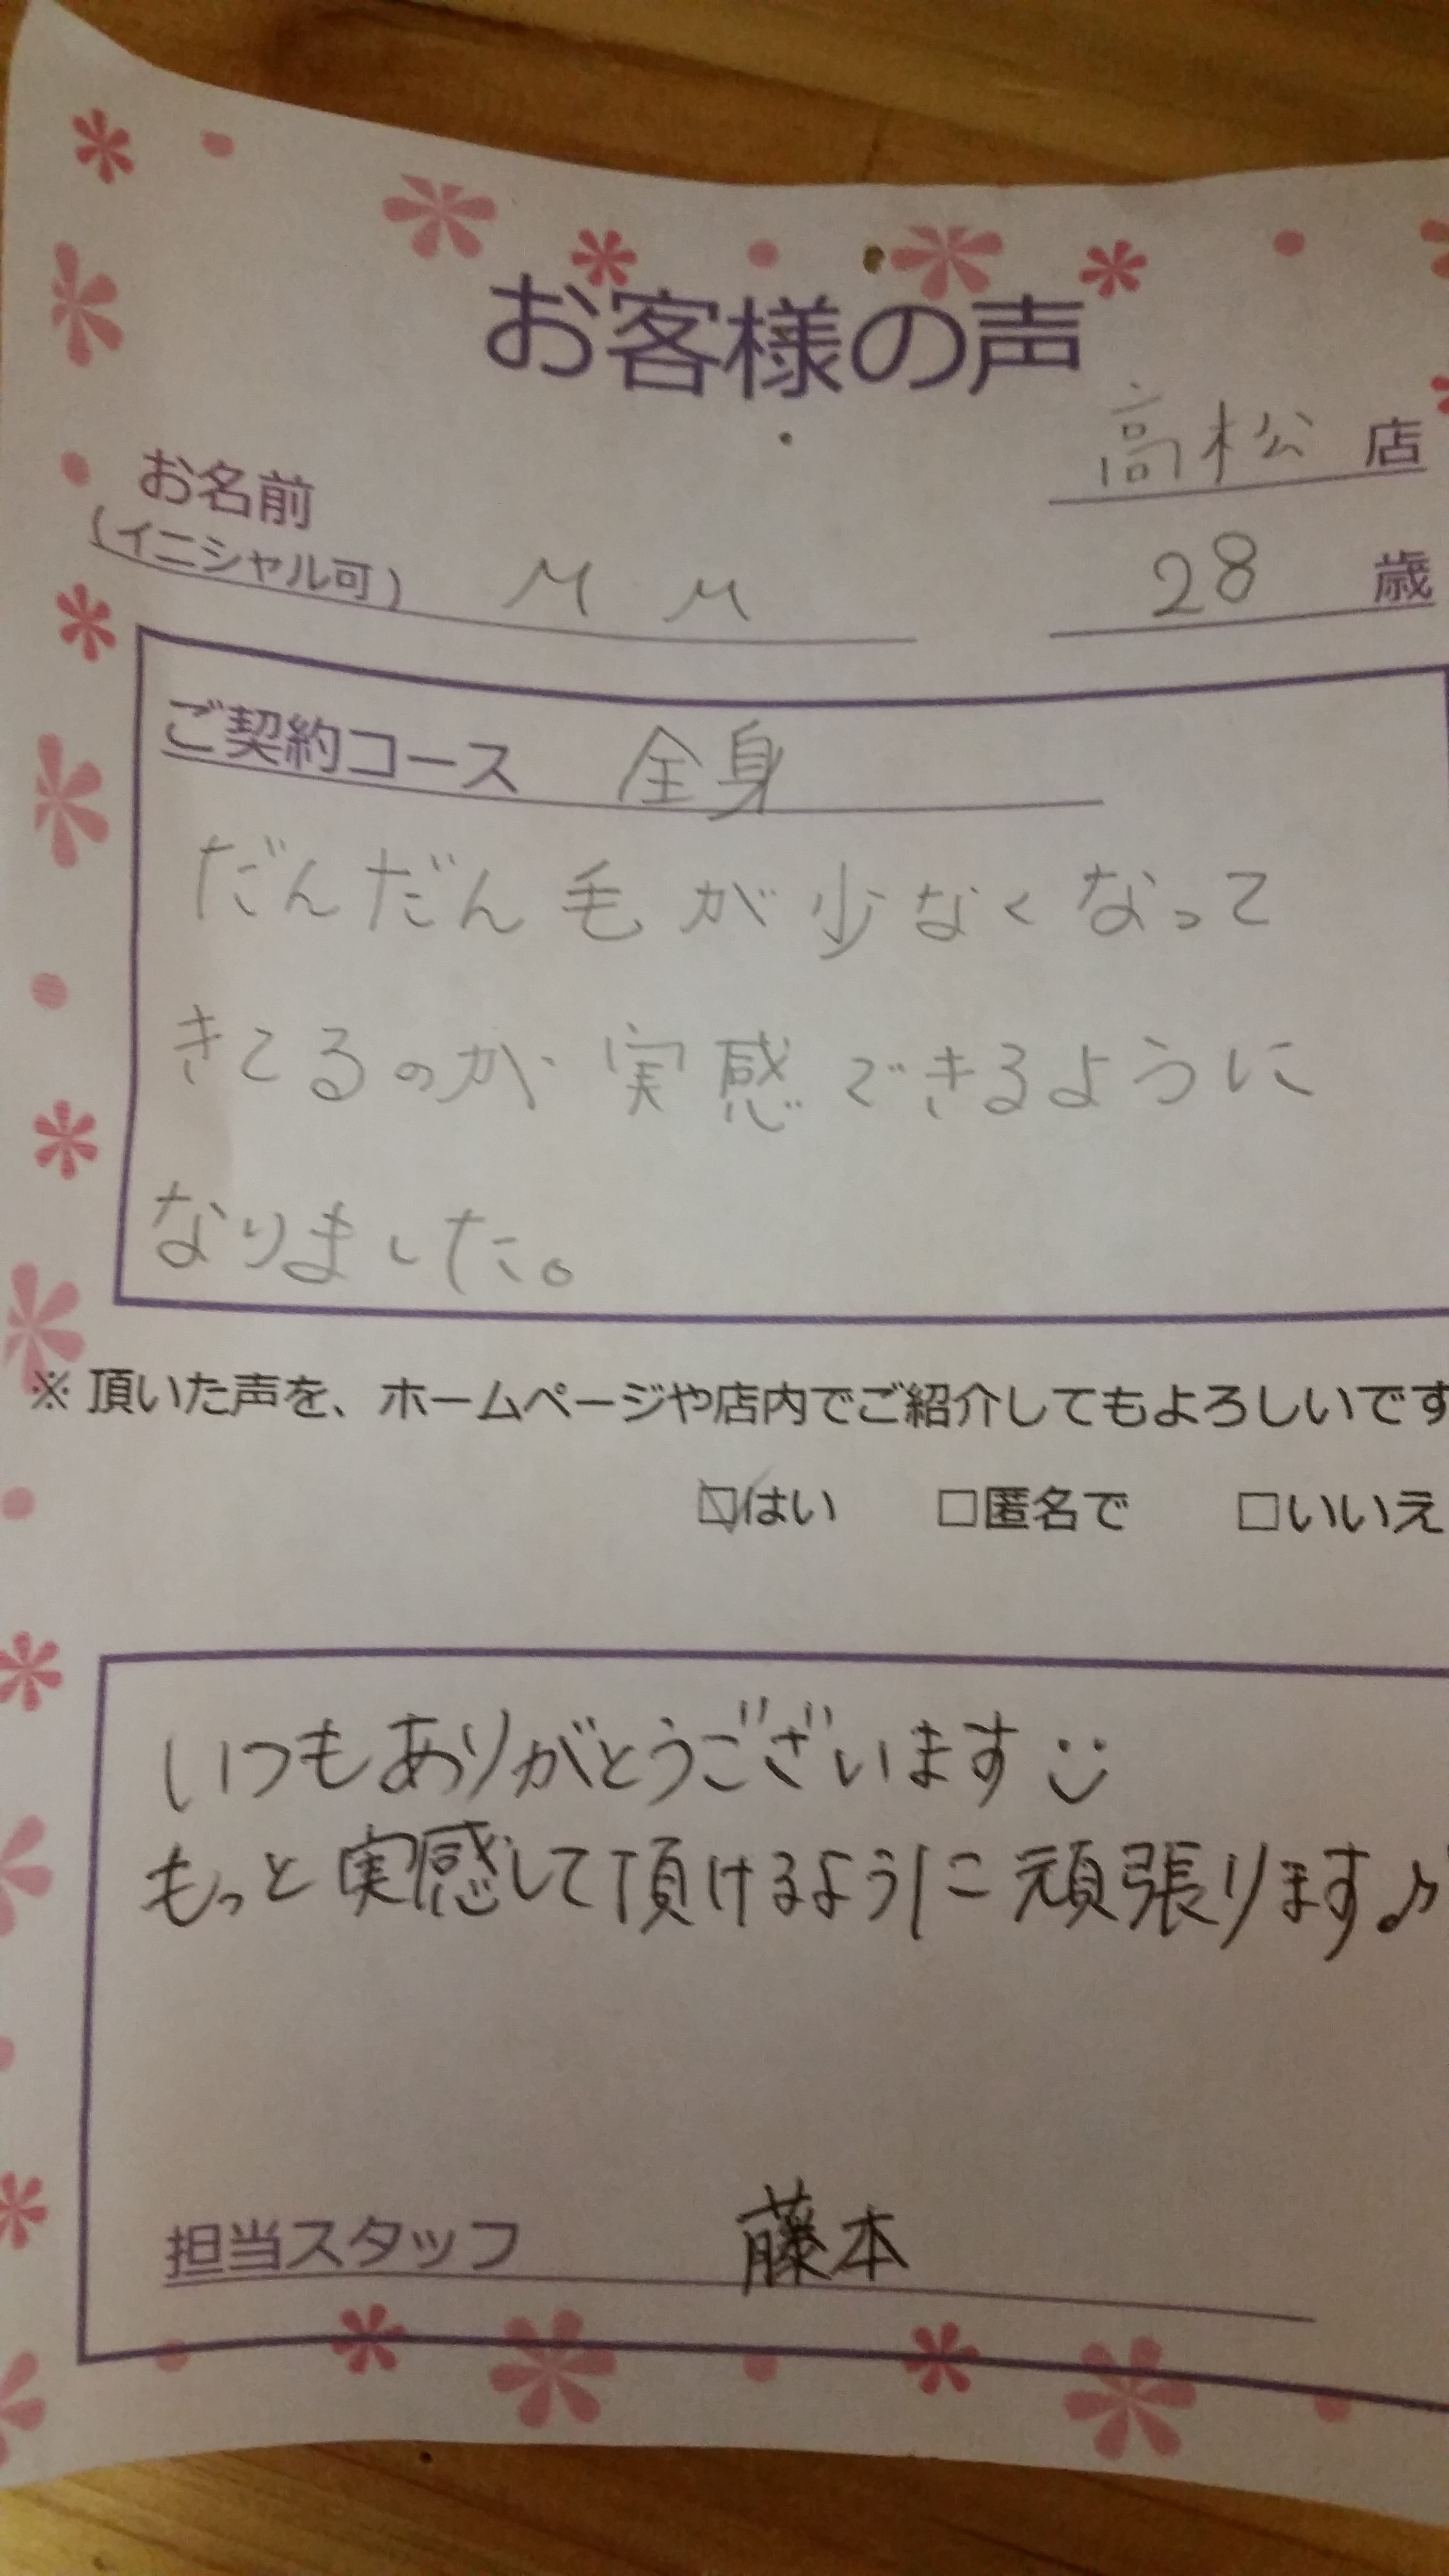 お客様の声
高松 店
お名前
(イニシャル可) M M
28 歳
ご契約コース 全身
だんだん毛が少なくなって
きてるのが実感できるように
なりました。
※ 頂いた声を、ホームページや店内でご紹介してもよろしいです
☑はい □匿名で □いいえ
いつもありがとうございます
もっと実感して頂けるように頑張ります♪
担当スタッフ 藤本